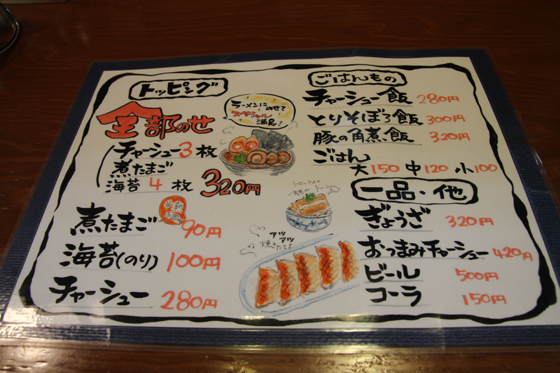 トッピング
全部のせ
チャーシュー3枚
煮たまご
海苔4枚
320円
煮たまご 90円
海苔(のり) 100円
チャーシュー 280円
ラーメンに
のせて
スペシャルに
ごはんもの
チャーシュー飯 280円
とりそぼろ飯 300円
豚の角煮飯 320円
ごはん
大150 中120 小100
一品・他
ぎょうざ 320円
おつまみチャーシュー 420円
ビール 500円
コーラ 150円
アツ
アツ